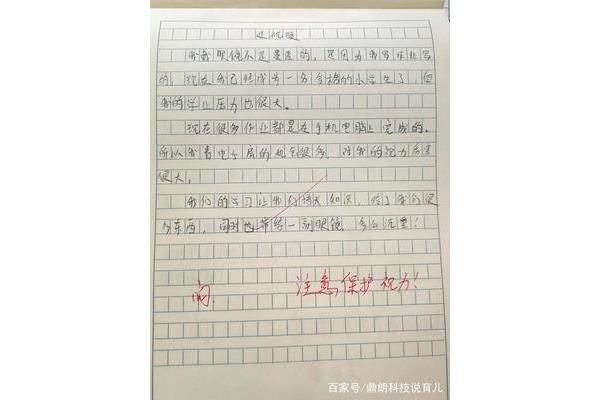 近视眼
我戴眼镜不是遗传的，是因为我写作业写
的，现在我已经成为一名合格的小学生了，但
我的学业压力也很大。
现在很多作业都是在手机电脑上完成的，
所以我看电子屏的机会很多，对我的视力危害
很大。
我们的学习让我们增大知识，给了我们很
多东西，同时也带给一副眼镜，多么沉重！
阅.
注意，保护视力！
百家号/鼎朗科技说育儿